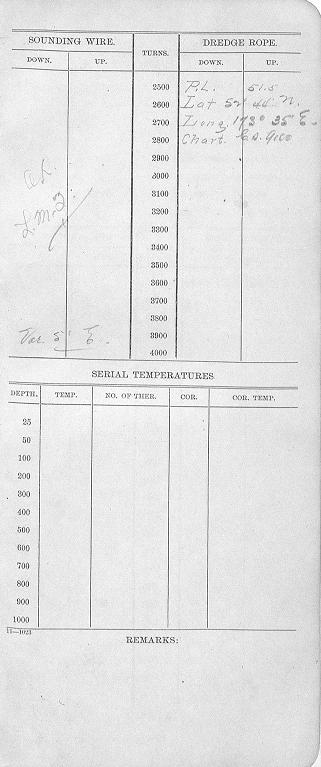 SOUNDING WIRE. TURNS. DREDGE ROPE.
DOWN. UP. DOWN. UP.
2500 P.L. 51.5
2600 Lat 52° 46' N.
2700 Long. 173° 35' E.
2800 Chart.
2900
3000
3100
3200
3300
3400
3500
3600
3700
3800
3900
Var. 5° E.
4000
SERIAL TEMPERATURES
DEPTH. TEMP. NO. OF THER. COR. COR. TEMP.
25
50
100
200
300
400
500
600
700
800
900
1000
11—1023
REMARKS: